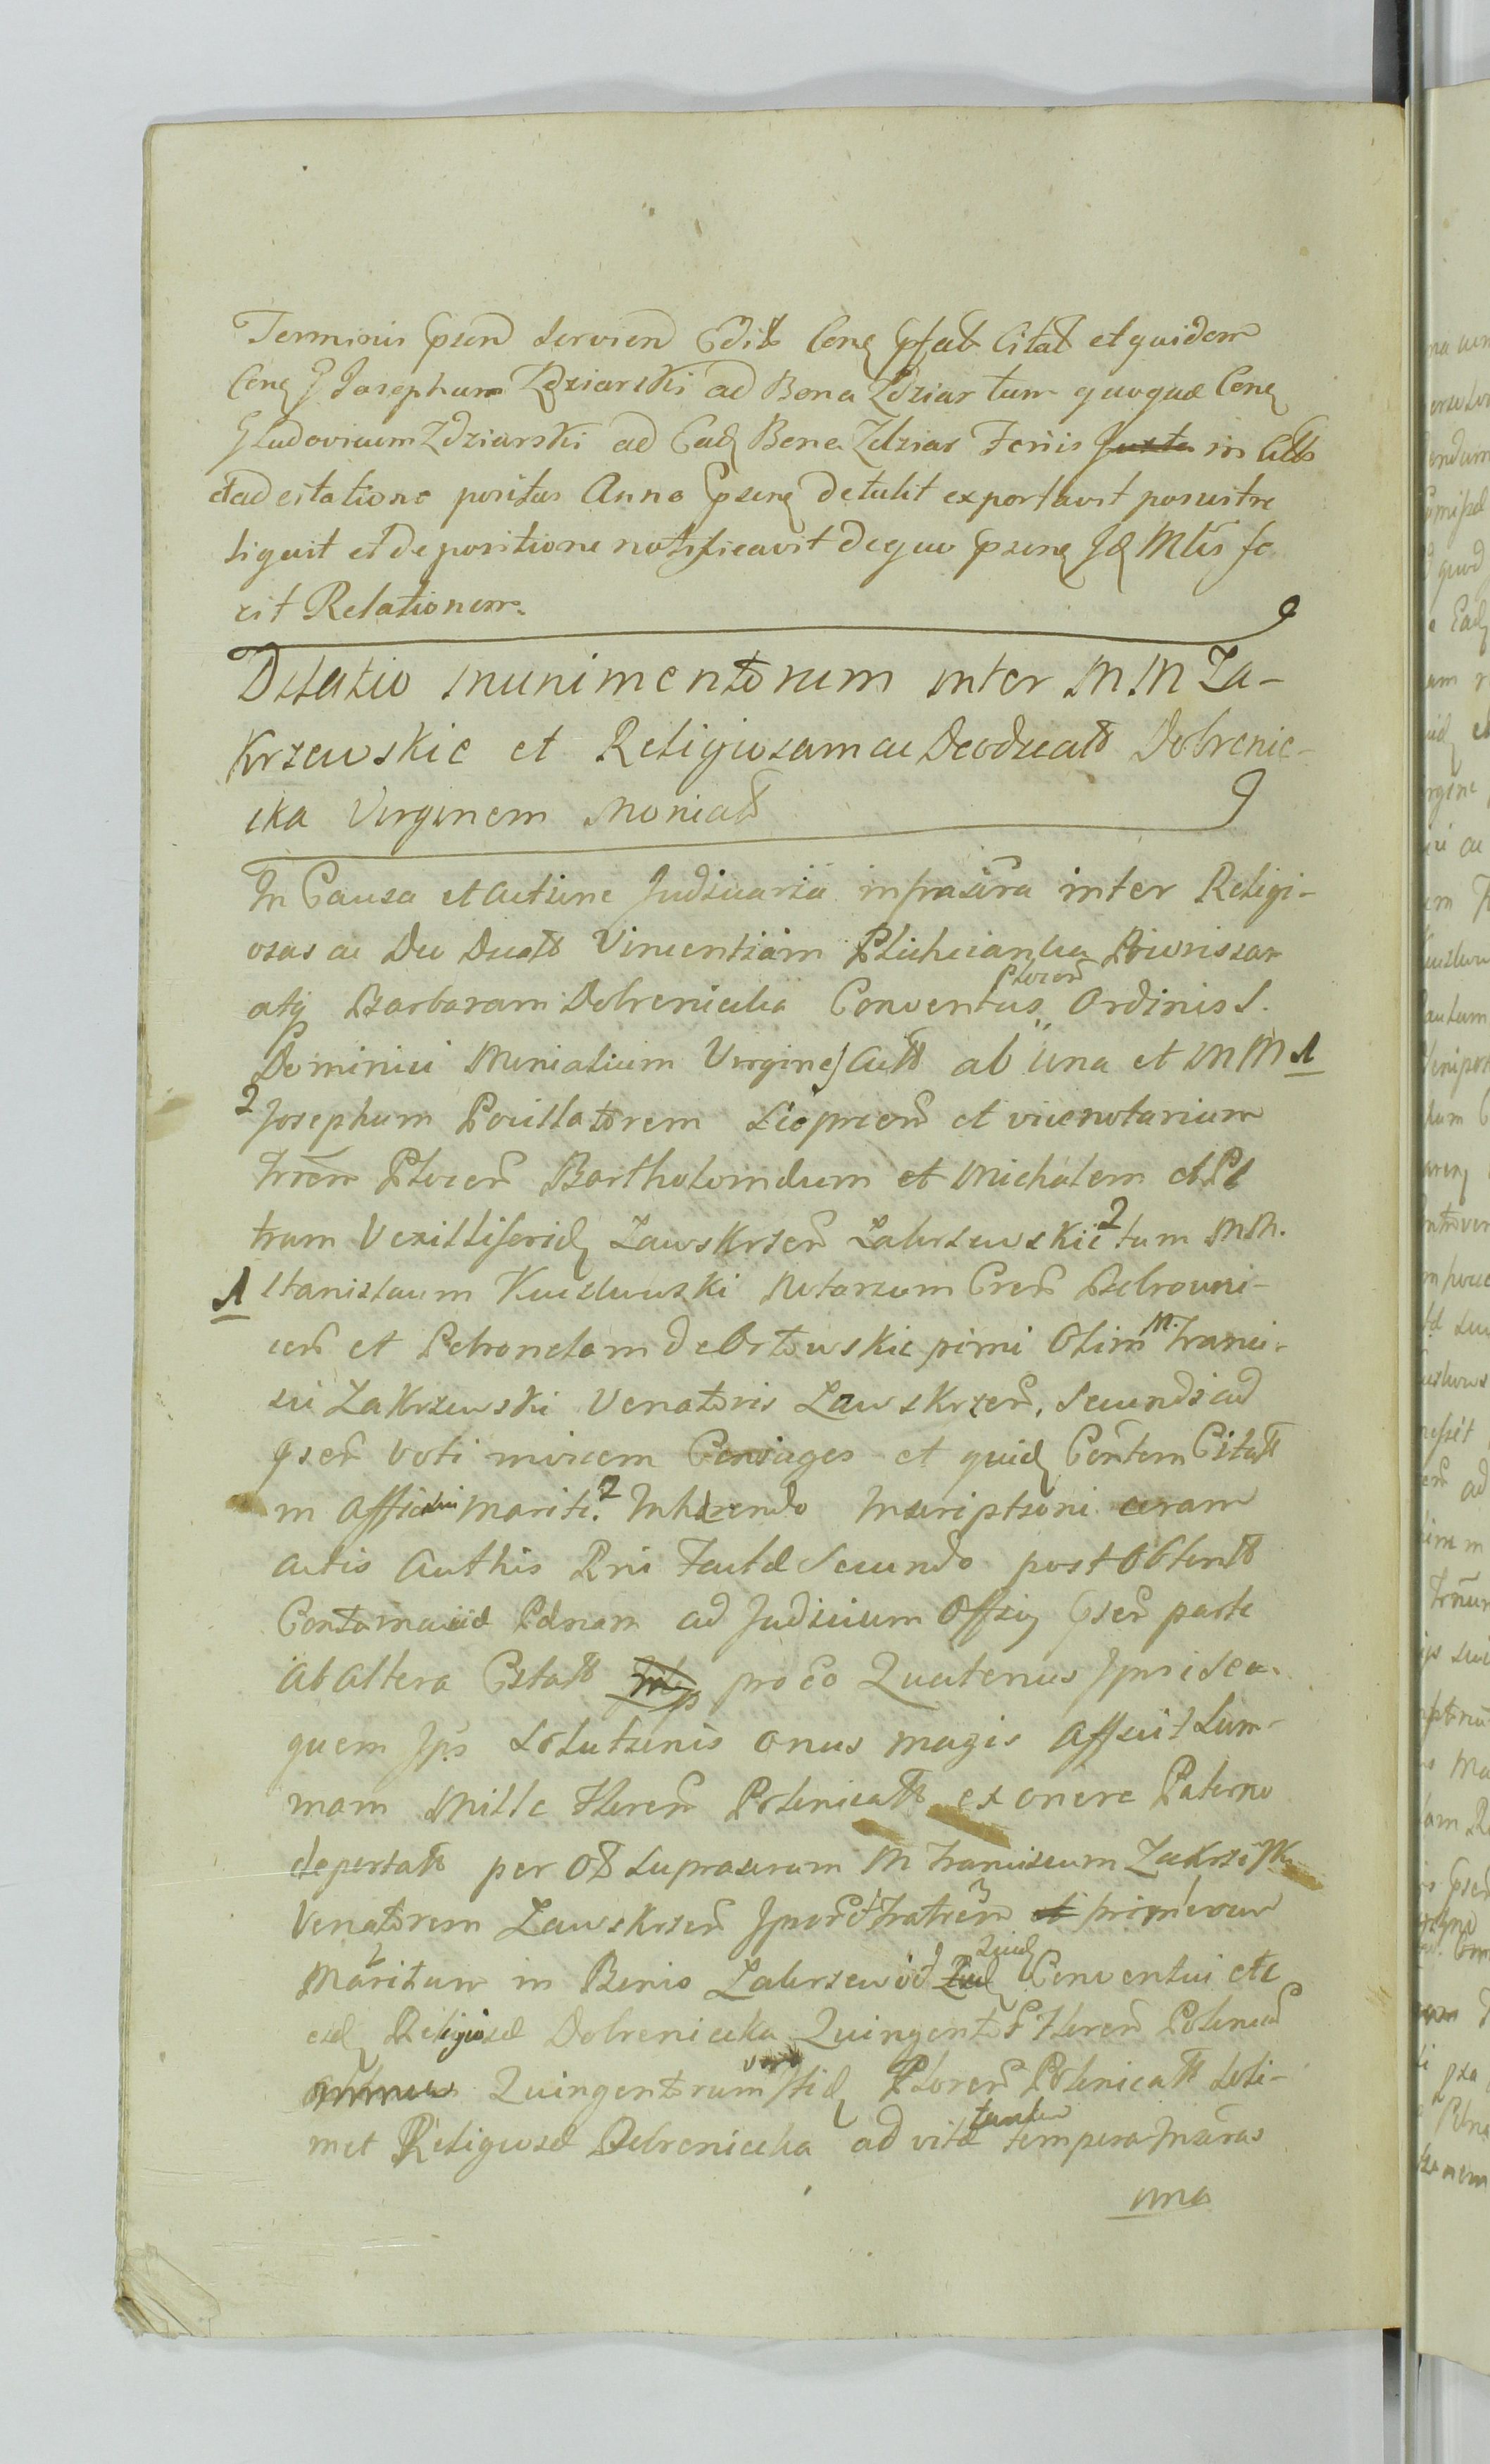 Terminis Gpsen Servien Edit Cong pfat Citat et quidem
Cong G Josephum Zdziarski ad Bona Zdziar tum quoque Cong
G Ludovicum Zdziarski ad Ead Bona Zdziar Feriis Juxta in Citto
et ad citatione positas Anno Gpseng detulit exportavit posuit re
liquit et de positione notificavit de quo Gpseng Jd Mtis fe
cit Relationem.
Dilatio munimentorum inter MM Za-
Krzewskie et Religiosam ac Deo dicatt Dobrenie-
cka Virginem Moniatt
In Causa et Actione Judiciaria infrascra inter Religi-
osas ac Deo Dicatt Vincentiam Plichcianka Priorissam
atq Barbaram Dobreniecka Conventus Plocen Ordinis S.
Dominici Monialium Virgines Actt ab una et MM 1
2 Josephum Pocillatorem Sieprcen et vicenotarium
Trren Plocen Bartholomeum et Michalem et Pe
trum Vexilliferid Zawskrzen Zakrzewskie 2 tum MM.
1 Stanislaum Kuczewski Notarium Cren Dobrouni-
cen et Petronelam de Ortowskie primi Olim M. Franci-
sci Zakrzewski Venatoris Zawskrzen, Secundi ad
Gsen voti invicem Coniuges et quid Contem Citatt
in assisten Mariti. 2 Inhærendo Inscriptioni coram
actis Authis Pni Factæ Secundo post Obtentt
Contumaciæ Pænam ad Judicium Offig Gsen parte
ab altera Citatt pro eo Quatenus Ipsi sea.
quem Ips Solutionis onus magis afficit Sum-
mam Mille Floren Polonicatt ex onere Paterno
deportatt per Ol Suprascrum M Franciscum Zakrzewski
Venatorem Zawskrzen Ipsor Fratrem et primevum
Maritum in Bonis Zakrzewo Quid Conventui ete
ead Religiosæ Dobreniecka Quingentos Floren Polonical
Quingentorum vero Itid Floren Polonicatt Soli-
met Religiosæ Dobreniecka ad vitæ tantu tempora Inscras
una